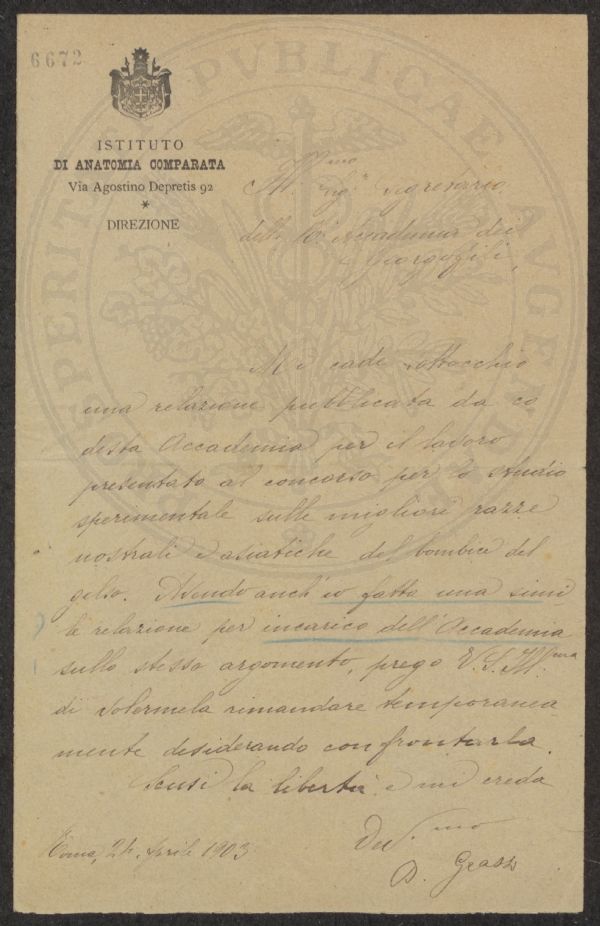 6672
ISTITUTO
DI ANATOMIA COMPARATA
Via Agostino Depretis 92
*
DIREZIONE
Ill.mo Sig.r Segretario
della R. Accademia dei
Georgofili,
Mi cade sottocchio
una relazione pubblicata da co
desta Accademia per il lavoro
presentato al concorso per lo studio
sperimentale sulle migliori razze
nostrali e asiatiche del bombice del
gelso. Avendo anch'io fatta una simi
le relazione per incarico dell'Accademia
sullo stesso argomento, prego V. S. Ill.ma
di volermela rimandare temporanea
mente desiderando confrontarla.
Scusi la libertà e mi creda
Dev.mo
Roma, 24. Aprile 1903
B. Grassi